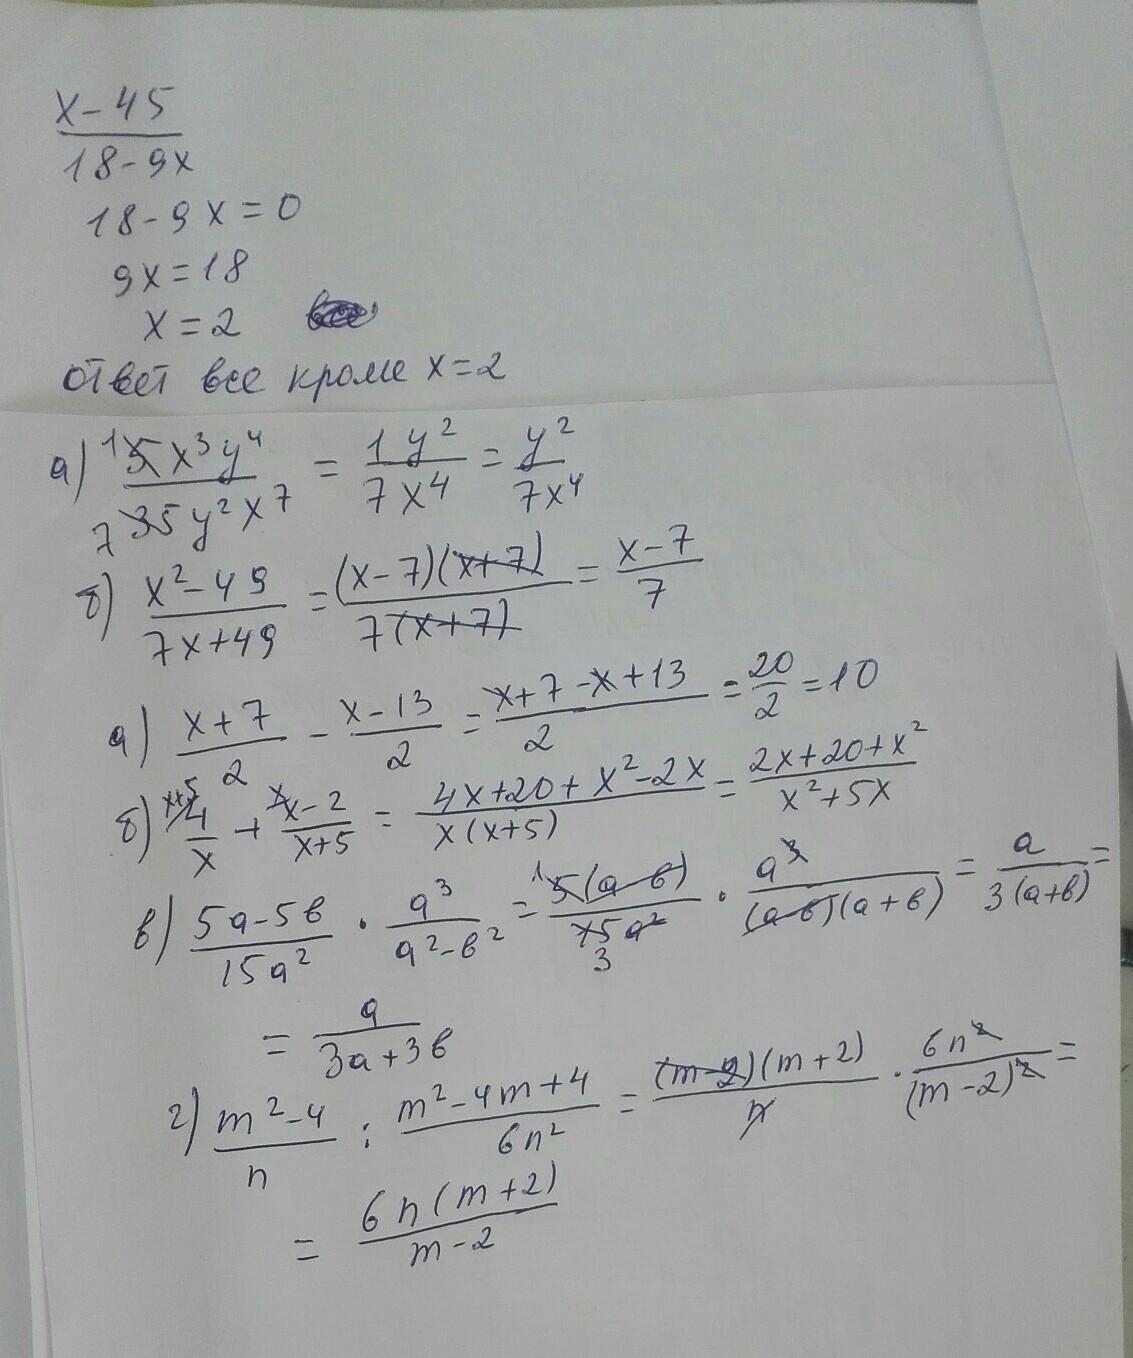 x-45
18-9x
18-9x=0
9x=18
x=2
ответ все кроме x=2
а) ¹5x³y⁴ / 7 35y²x⁷ = 1y² / 7x⁴ = y² / 7x⁴
б) x²-49 / 7x+49 = (x-7)(x+7) / 7(x+7) = x-7 / 7
а) x+7 / 2 - x-13 / 2 = x+7-x+13 / 2 = 20 / 2 = 10
б) x+5 4 / x + x x-2 / x+5 = 4x+20+x²-2x / x(x+5) = 2x+20+x² / x²+5x
в) 5a-5в / 15a² · a³ / a²-в² = ¹5(a-в) / 15a² 3 · a³ / (a-в)(a+в) = a / 3(a+в) =
= a / 3a+3в
г) m²-4 / n : m²-4m+4 / 6n² = (m-2)(m+2) / n · 6n² / (m-2)² =
= 6n(m+2) / m-2